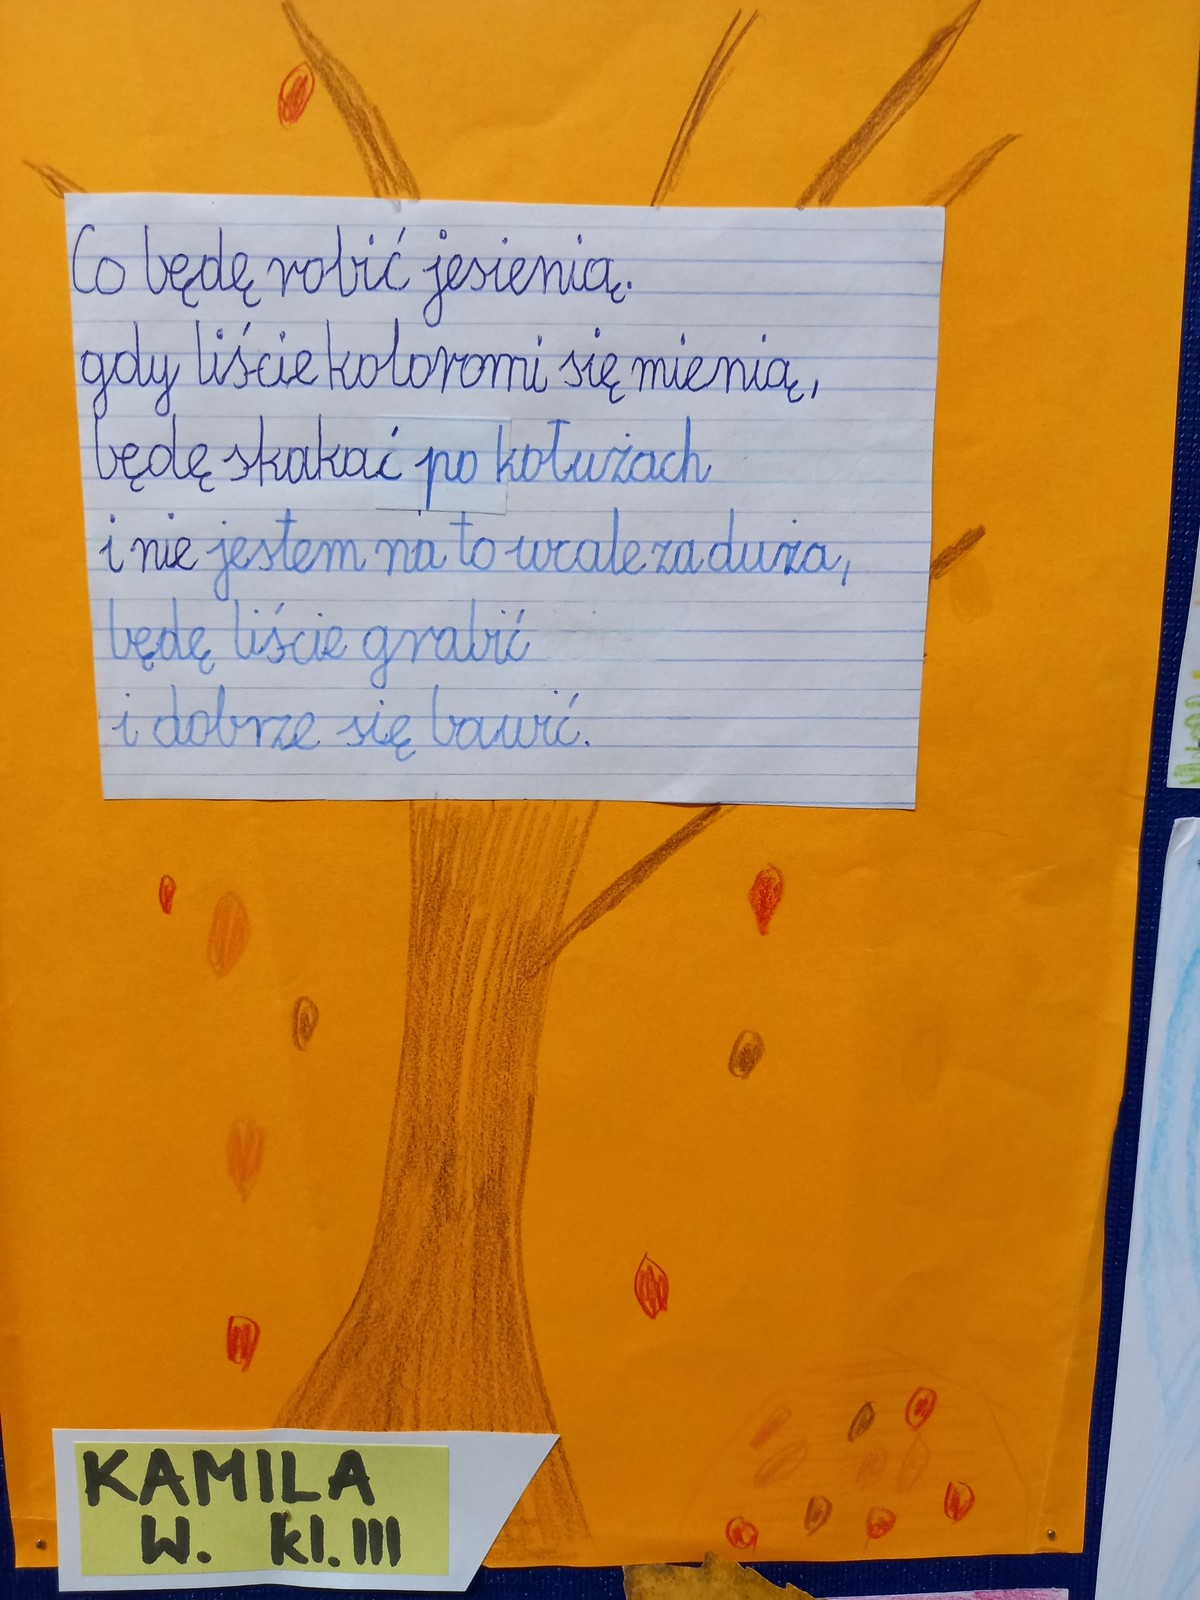 Co będę robić jesienią.
gdy liście kolorami się mienią,
będę skakać po kołużach
i nie jestem na to wcale za duża,
będę liście grabić
i dobrze się bawić.
KAMILA
W. kl. III